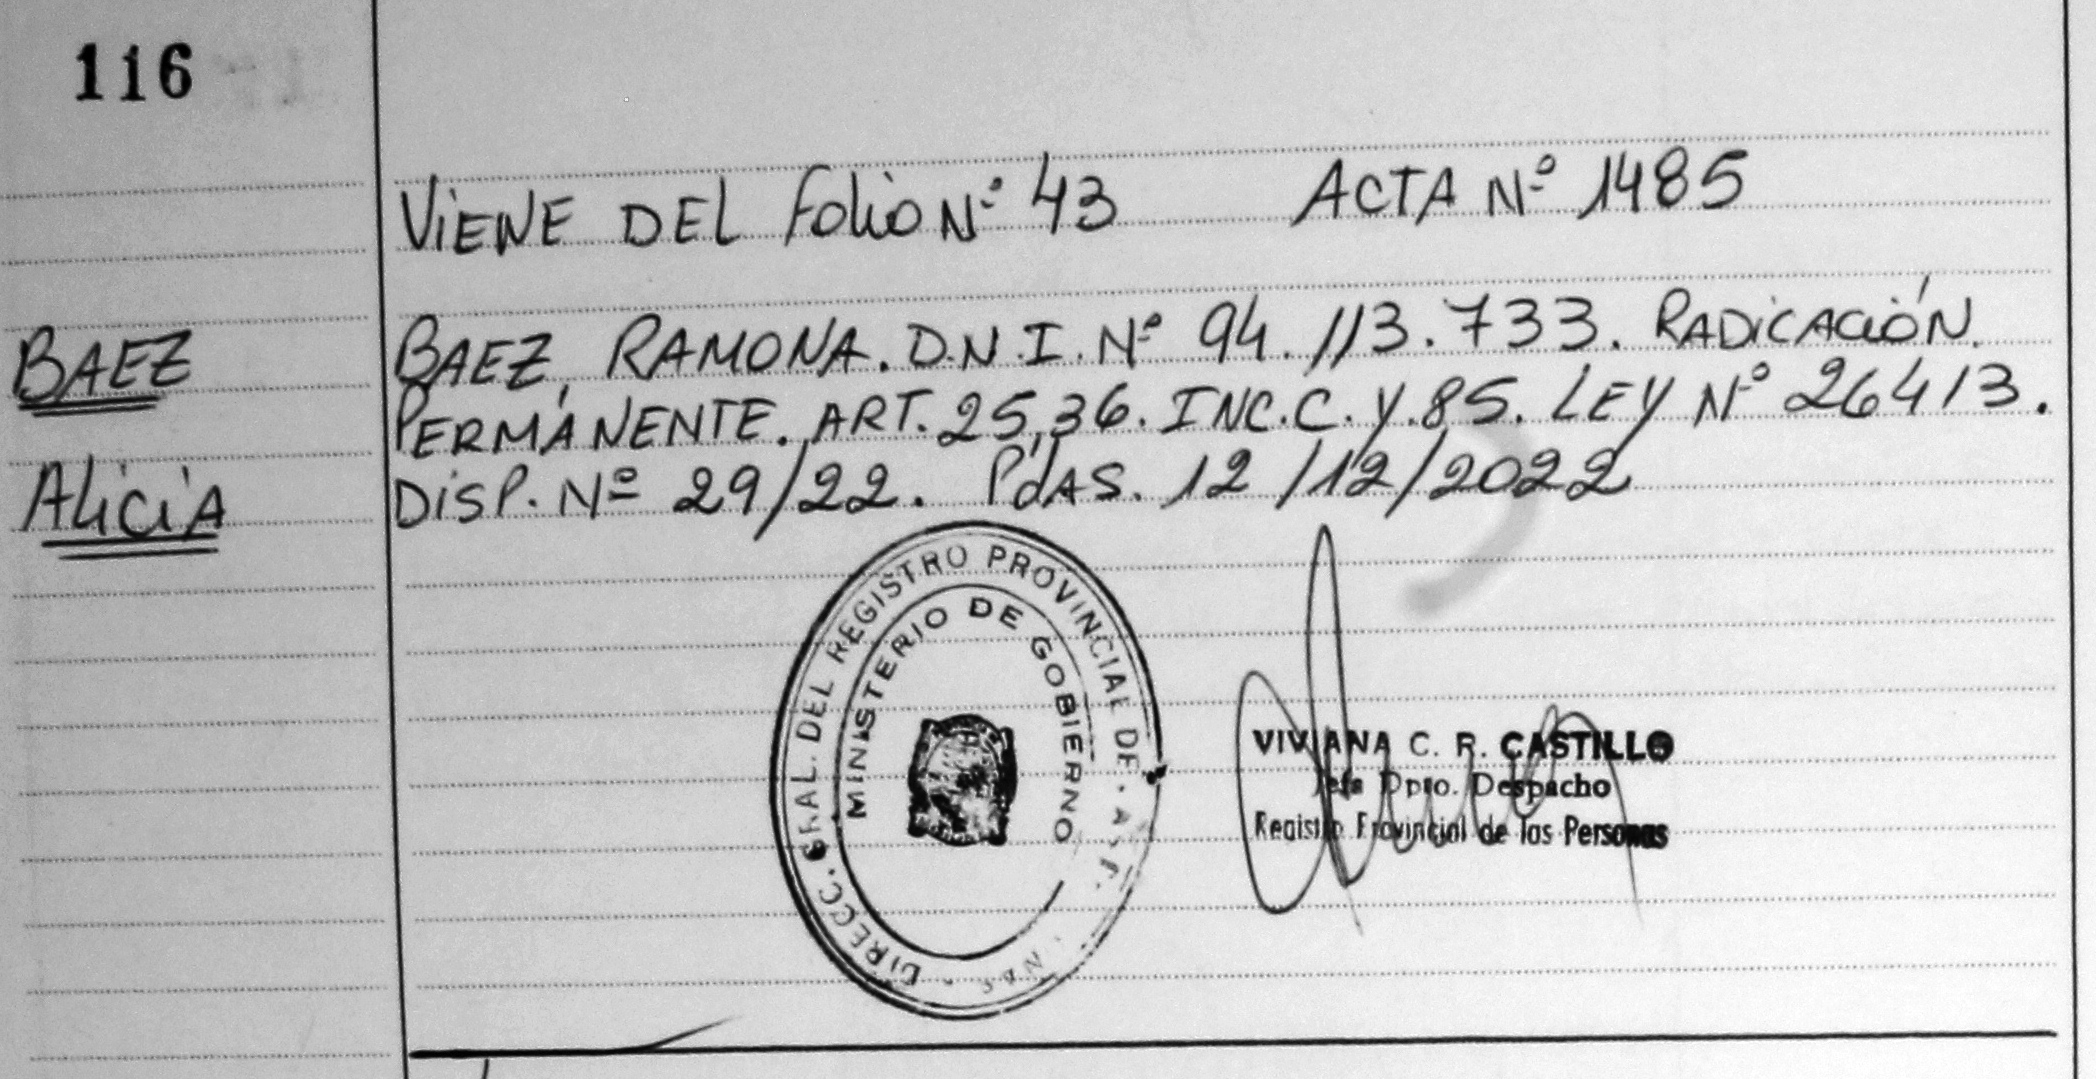 116
VIENE DEL Folio Nº 43 ACTA Nº 1485
BAEZ
BAEZ, RAMONA. D.N.I. Nº 94.113.733. RADICACIÓN.
PERMANENTE. ART. 25, 36. INC. C. Y. 85. LEY Nº 26413.
Alicia
DISP. Nº 29/22. PdAS. 12/12/2022
DIRECC. GRAL. DEL REGISTRO PROVINCIAL DE
MINISTERIO DE GOBIERNO
VIVIANA C. R. CASTILLO
Jefa Dpto. Despacho
Registro Provincial de las Personas